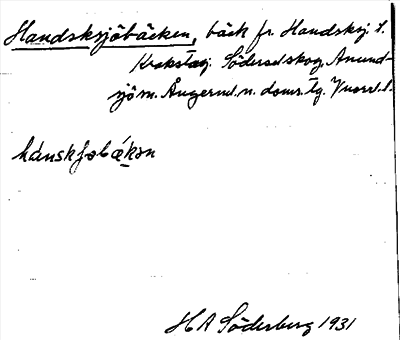 Handsksjöbäcken, bäck fr. Handsksj. t.
Krokstasj. Söderedskog, Anund-
sjö sn. Ångerml. n. doms. tg.
hánskʃəbǽkən
H A Söderberg 1931